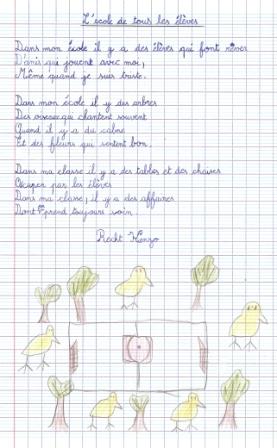 L'école de tous les élèves
Dans mon école il y a des élèves qui font rêver
D'amis qui jouent avec moi,
Même quand je suis triste.
Dans mon école il y des arbres
Des oiseaux qui chantent souvent
Quand il y a du calme
Et des fleurs qui sentent bon.
Dans ma classe il y a des tables et des chaises
Occuper par les élèves
Dans ma classe, il y a des affaires
Dont prend toujours soin.
Recht Kenzo